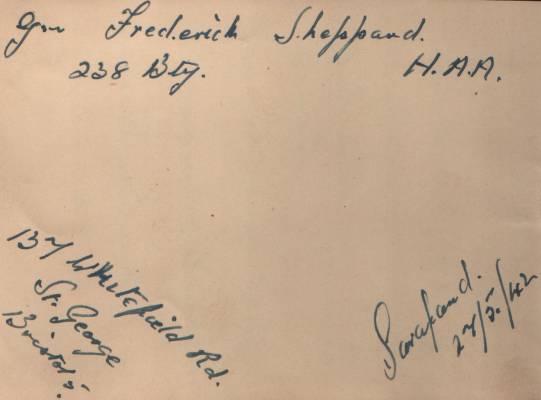 Gnr Frederick Sheppard.
238 Bty. H.A.A.
137 Whitefield Rd.
St. George
Bristol 5.
Sarafand.
27/5/42